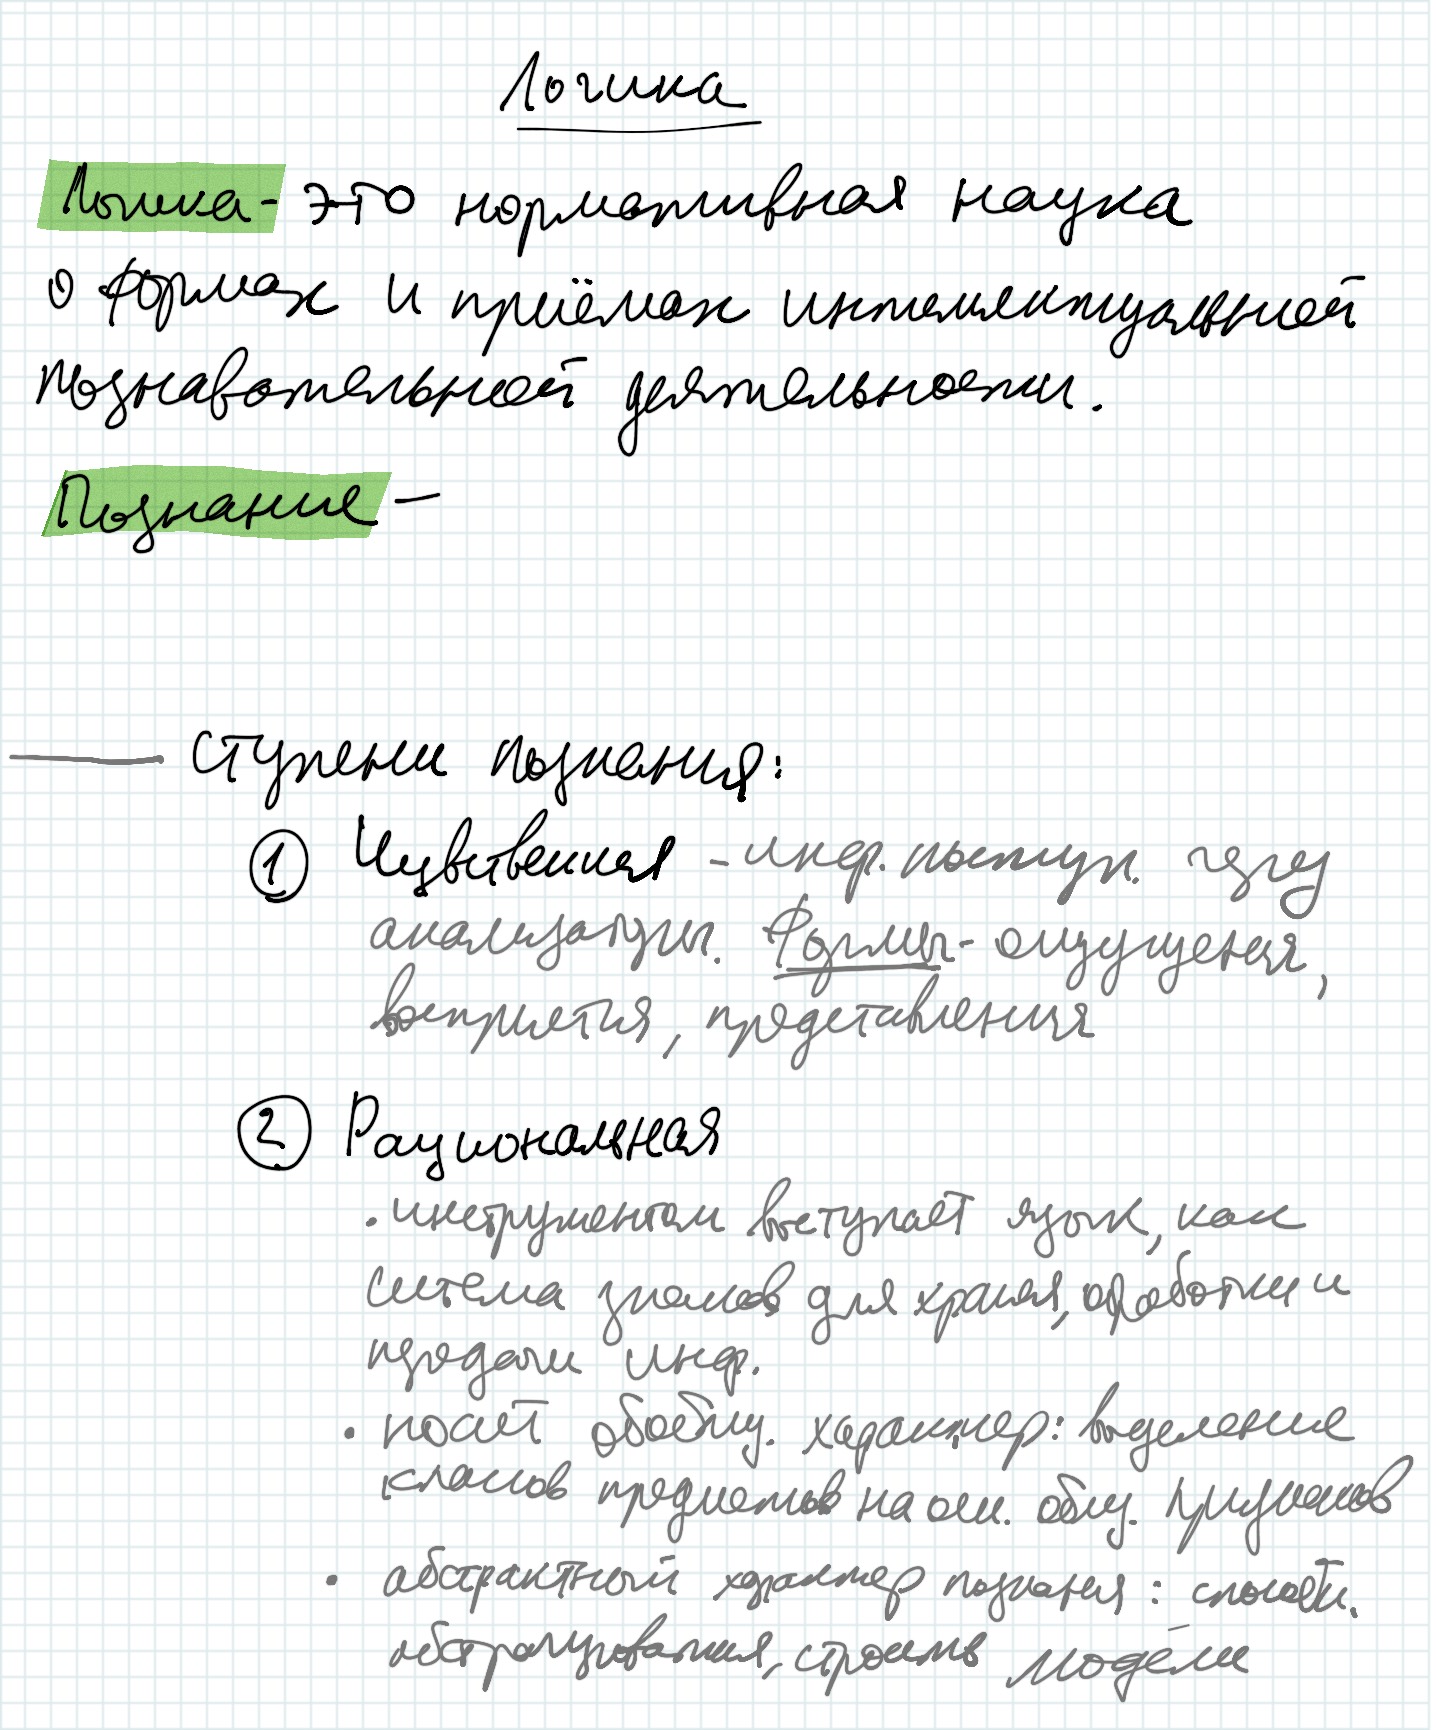 Логика
Логика - это нормативная наука
о формах и приёмах интеллектуальной
познавательной деятельности.
Познание -
Ступени познания:
① Чувственная - инф. поступ. через
анализаторы. Формы - ощущения,
восприятия, представления
② Рациональная
• инструментом выступает язык, как
система знаков для хранения, обработки и
передачи инф.
• носит обобщ. характер: выделение
классов предметов на осн. общ. признаков
• абстрактный характер познания: способн.
абстрагирования, строить модели